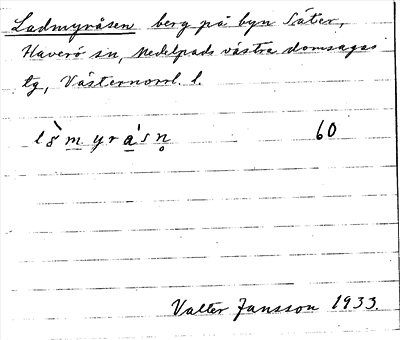 Ladmyråsen berg på byn Säter,
Haverö sn, Medelpads västra domsagas
tg, Västernorrl. l.
60
Valter Jansson 1933